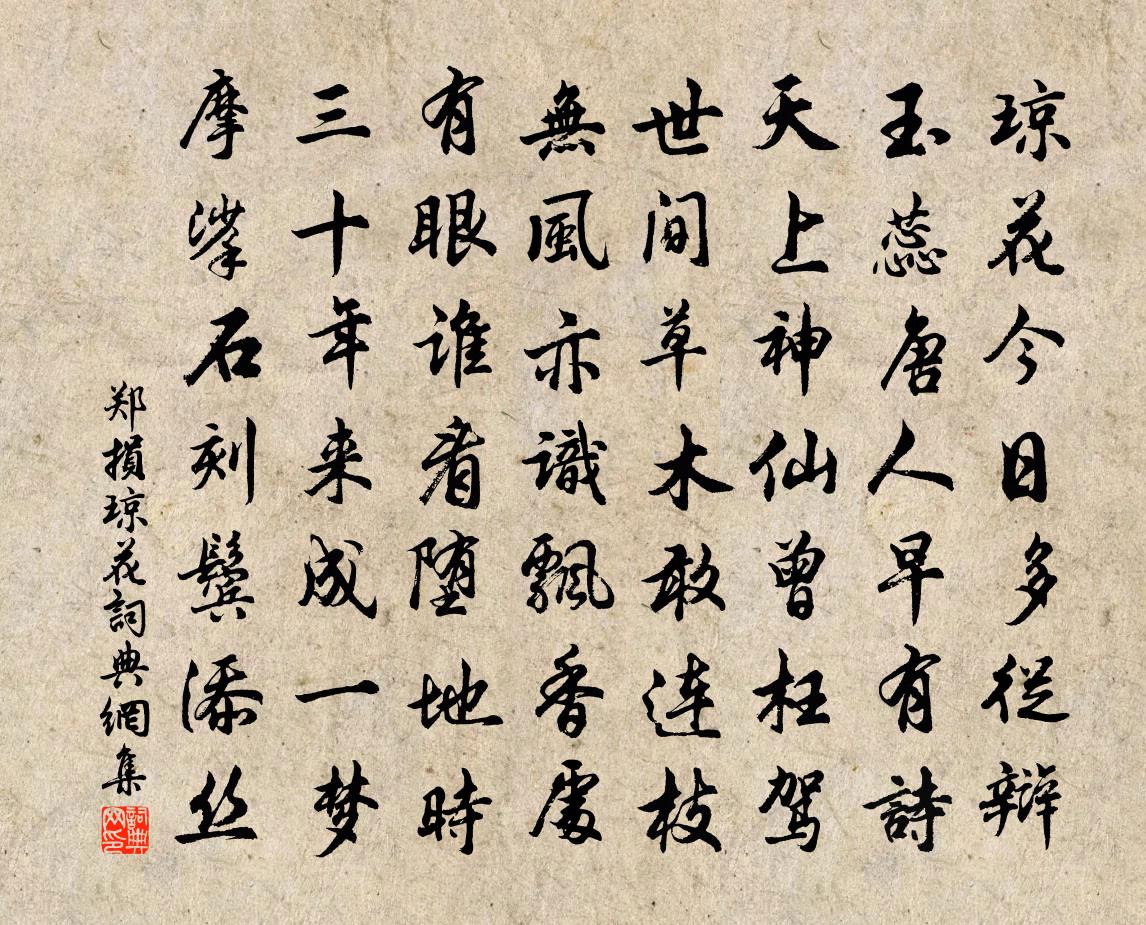 琼花今日多従辩
玉蕊唐人早有詩
天上神仙曾枉驾
世间草木敢连枝
無風亦識飄香處
有眼谁看堕地時
三十年来成一梦
摩挲石刻鬓添丝
郑損琼花詞典網集
詞典网印